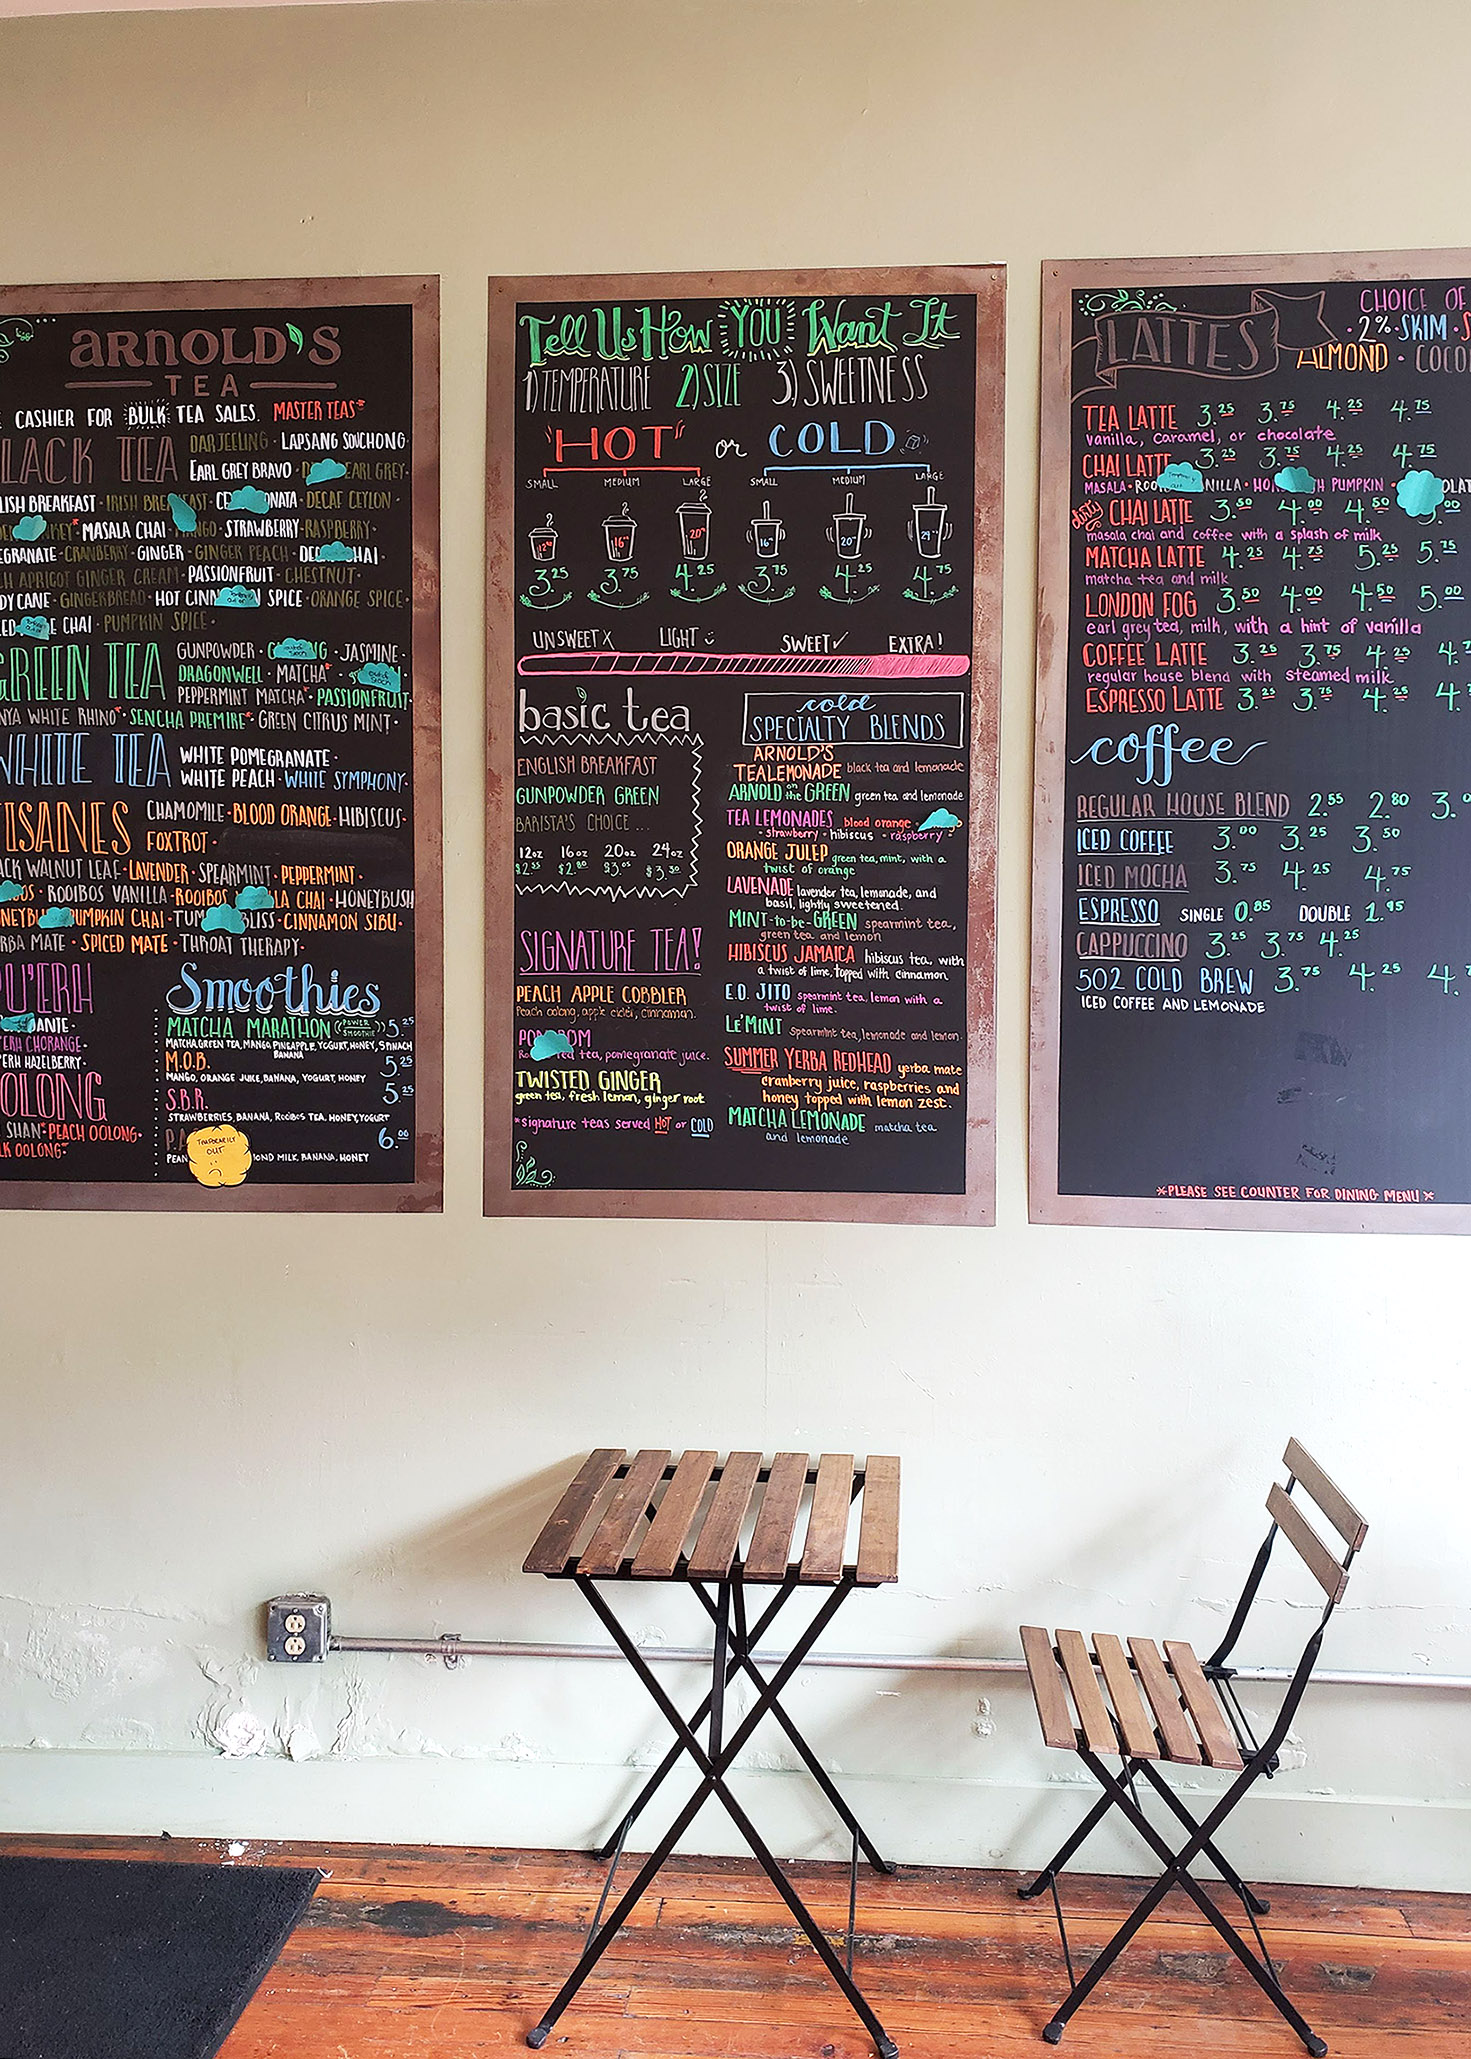 ARNOLD'S
TEA
CASHIER FOR BULK TEA SALES. MASTER TEAS*
LACK TEA DARJEELING · LAPSANG SOUCHONG ·
EARL GREY BRAVO · EARL GREY ·
LISH BREAKFAST · IRISH BREAKFAST · DECAF CEYLON ·
MASALA CHAI · STRAWBERRY · RASPBERRY ·
EGRANATE · CRANBERRY · GINGER · GINGER PEACH · HAI ·
H APRICOT GINGER CREAM · PASSIONFRUIT · CHESTNUT ·
DY CANE · GINGERBREAD · HOT SPICE · ORANGE SPICE ·
E CHAI · PUMPKIN SPICE ·
GREEN TEA GUNPOWDER · JASMINE ·
DRAGONWELL · MATCHA* ·
PEPPERMINT MATCHA* · PASSIONFRUIT ·
NYA WHITE RHINO* · SENCHA PREMIRE* · GREEN CITRUS MINT ·
WHITE TEA WHITE POMEGRANATE ·
WHITE PEACH · WHITE SYMPHONY ·
TISANES CHAMOMILE · BLOOD ORANGE · HIBISCUS ·
FOXTROT ·
ACK WALNUT LEAF · LAVENDER · SPEARMINT · PEPPERMINT ·
OS · ROOIBOS VANILLA · ROOIBOS LA CHAI · HONEYBUSH
PUMPKIN CHAI · BLISS · CINNAMON SIBU ·
RBA MATE · SPICED MATE · THROAT THERAPY ·
PU'ERH
DANTE ·
ERH CHORANGE ·
ERH HAZELBERRY ·
OOLONG
SHAN · PEACH OOLONG ·
LK OOLONG ·
Smoothies
MATCHA MARATHON ((POWER SMOOTHIE)) 5.25
MATCHA GREEN TEA, MANGO, PINEAPPLE, YOGURT, HONEY, SPINACH
BANANA
M.O.B. 5.25
MANGO, ORANGE JUICE, BANANA, YOGURT, HONEY
S.B.R. 5.25
STRAWBERRIES, BANANA, ROOIBOS TEA, HONEY, YOGURT
P.A 6.00
PEAN OND MILK, BANANA, HONEY
TEMPORARILY
OUT
Tell Us How YOU Want It
1) TEMPERATURE 2) SIZE 3) SWEETNESS
"HOT" or COLD
SMALL MEDIUM LARGE SMALL MEDIUM LARGE
12oz 16oz 20oz 16oz 20oz 24oz
3.25 3.75 4.25 3.75 4.25 4.75
UNSWEET X LIGHT SWEET ✓ EXTRA!
basic tea
ENGLISH BREAKFAST
GUNPOWDER GREEN
BARISTA'S CHOICE ...
12oz 16oz 20oz 24oz
$2.55 $2.80 $3.05 $3.30
SIGNATURE TEA!
PEACH APPLE COBBLER
Peach oolong, apple cider, cinnamon.
POM
tea, pomegranate juice.
TWISTED GINGER
green tea, fresh lemon, ginger root
*signature teas served HOT or COLD
cold
SPECIALTY BLENDS
ARNOLD'S
TEALEMONADE black tea and lemonade
ARNOLD on the GREEN green tea and lemonade
TEA LEMONADES blood orange ·
· strawberry · hibiscus · raspberry
ORANGE JULEP green tea, mint, with a
twist of orange
LAVENADE lavender tea, lemonade, and
basil, lightly sweetened.
MINT-to-be-GREEN spearmint tea,
green tea and lemon
HIBISCUS JAMAICA hibiscus tea, with
a twist of lime, topped with cinnamon
E.O. JITO spearmint tea, lemon with a
twist of lime.
LE'MINT spearmint tea, lemonade and lemon.
SUMMER YERBA REDHEAD yerba mate
cranberry juice, raspberries and
honey topped with lemon zest.
MATCHA LEMONADE matcha tea
and lemonade
LATTES
CHOICE OF
· 2% · SKIM ·
ALMOND ·
TEA LATTE 3.25 3.75 4.25 4.75
vanilla, caramel, or chocolate
CHAI LATTE 3.25 3.75 4.25 4.75
MASALA · PUMPKIN ·
dirty CHAI LATTE 3.50 4.00 4.50 5.00
masala chai and coffee with a splash of milk
MATCHA LATTE 4.25 4.75 5.25 5.75
matcha tea and milk
LONDON FOG 3.50 4.00 4.50 5.00
earl grey tea, milk, with a hint of vanilla
COFFEE LATTE 3.25 3.75 4.25 4.7
regular house blend with steamed milk
ESPRESSO LATTE 3.25 3.75 4.25 4.
coffee
REGULAR HOUSE BLEND 2.55 2.80 3.0
ICED COFFEE 3.00 3.25 3.50
ICED MOCHA 3.75 4.25 4.75
ESPRESSO SINGLE 0.85 DOUBLE 1.95
CAPPUCCINO 3.25 3.75 4.25
502 COLD BREW 3.75 4.25 4.
ICED COFFEE AND LEMONADE
*PLEASE SEE COUNTER FOR DINING MENU*